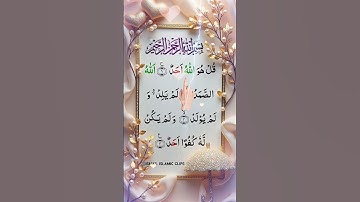 بِسْمِ اللهِ الرَّحْمٰنِ الرَّحِيْمِ
قُلْ هُوَ اللهُ اَحَدٌ ۚ﴿۱﴾ اَللهُ
الصَّمَدُ ۚ﴿۲﴾ لَمْ يَلِدْ ۙ وَ
لَمْ يُوْلَدْ ۙ﴿۳﴾ وَ لَمْ يَكُنْ
لَّهٗ كُفُوًا اَحَدٌ ﴿۴﴾
ISLAMIC CLIPS